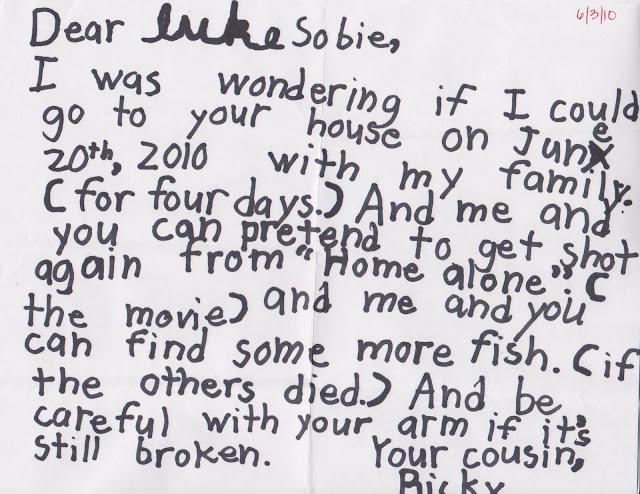 6/3/10
Dear Luke Sobie,
I was wondering if I could
go to your house on June
20th, 2010 with my family.
(for four days.) And me and
you can pretend to get shot
again from "Home alone". (
the movie) and me and you
can find some more fish. (if
the others died.) And be
careful with your arm if it's
still broken. Your cousin,
Ricky